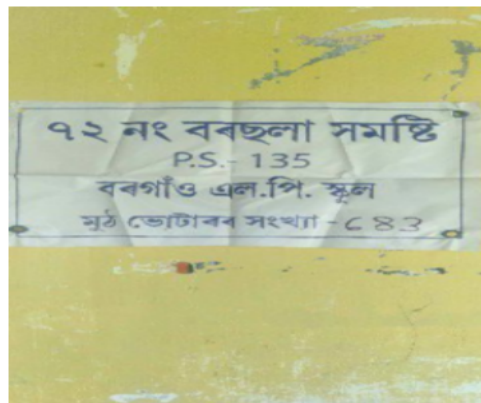 ৭২ নং বৰছলা সমষ্টি
P.S.- 135
বৰগাঁও এল.পি. স্কুল
মুঠ ভোটাৰৰ সংখ্যা - ৬৪3